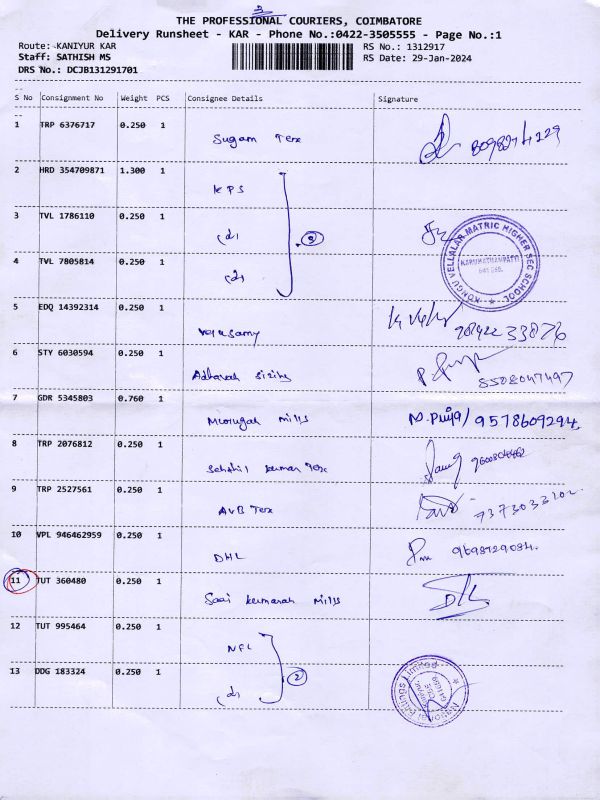 3
THE PROFESSIONAL COURIERS, COIMBATORE
Delivery Runsheet - KAR - Phone No.:0422-3505555 - Page No.:1
Route: KANIYUR KAR RS No.: 1312917
Staff: SATHISH MS RS Date: 29-Jan-2024
DRS No.: DCJB131291701
S No Consignment No Weight PCS Consignee Details Signature
1 TRP 6376717 0.250 1
Sugam Tex
2 HRD 354709871 1.300 1
KPS
3 TVL 1786110 0.250 1
(d)
3
4 TVL 7805814 0.250 1
(d)
KONGU VELLALAR MATRIC HIGHER SEC SCHOOL
KARUMATHAMPATTI
641 659.
5 EDQ 14392314 0.250 1
Velusamy
98422 33876
6 STY 6030594 0.250 1
Adharah sizing
8508047497
7 GDR 5345803 0.760 1
Murugah mills
N. Priya/9578609294.
8 TRP 2076812 0.250 1
kumar Tex
9 TRP 2527561 0.250 1
AVB Tex
7373033102.
10 VPL 946462959 0.250 1
DHL
9698729084.
11 TUT 360480 0.250 1
Saai kumarah mills
12 TUT 995464 0.250 1
NFL
2
13 DDG 183324 0.250 1
(d)
National Fittings Limited